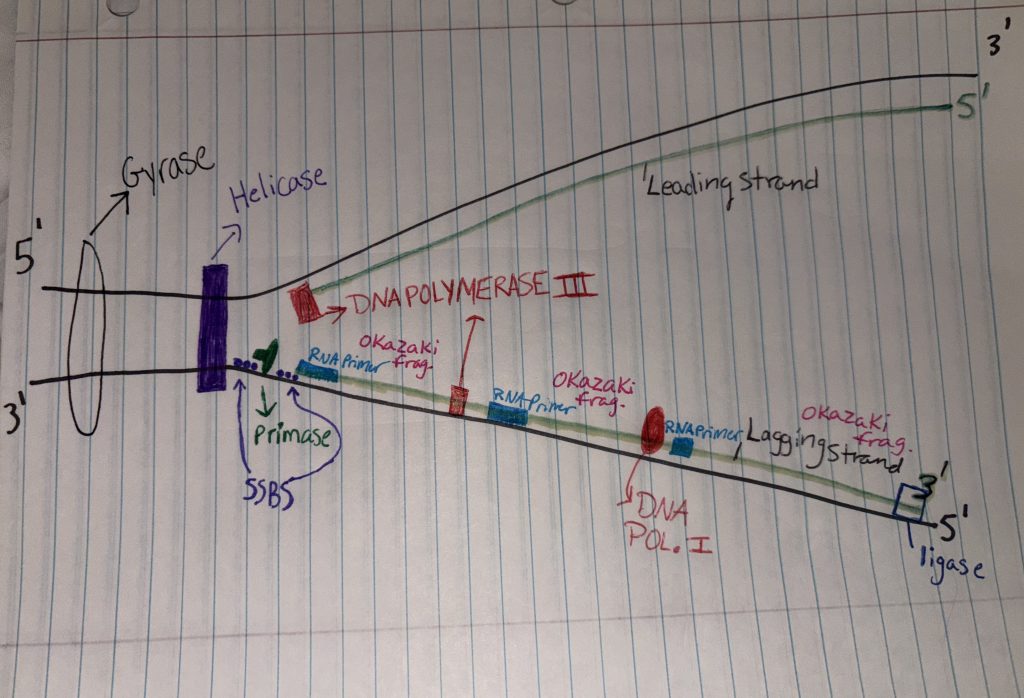 3'
5'
Gyrase
Helicase
Leading Strand
5'
DNA POLYMERASE III
OKazaki
frag.
RNA Primer
OKazaki
frag.
RNA Primer
OKazaki
frag.
RNA Primer
Lagging Strand
3'
Primase
SSBS
3'
5'
DNA
POL. I
ligase